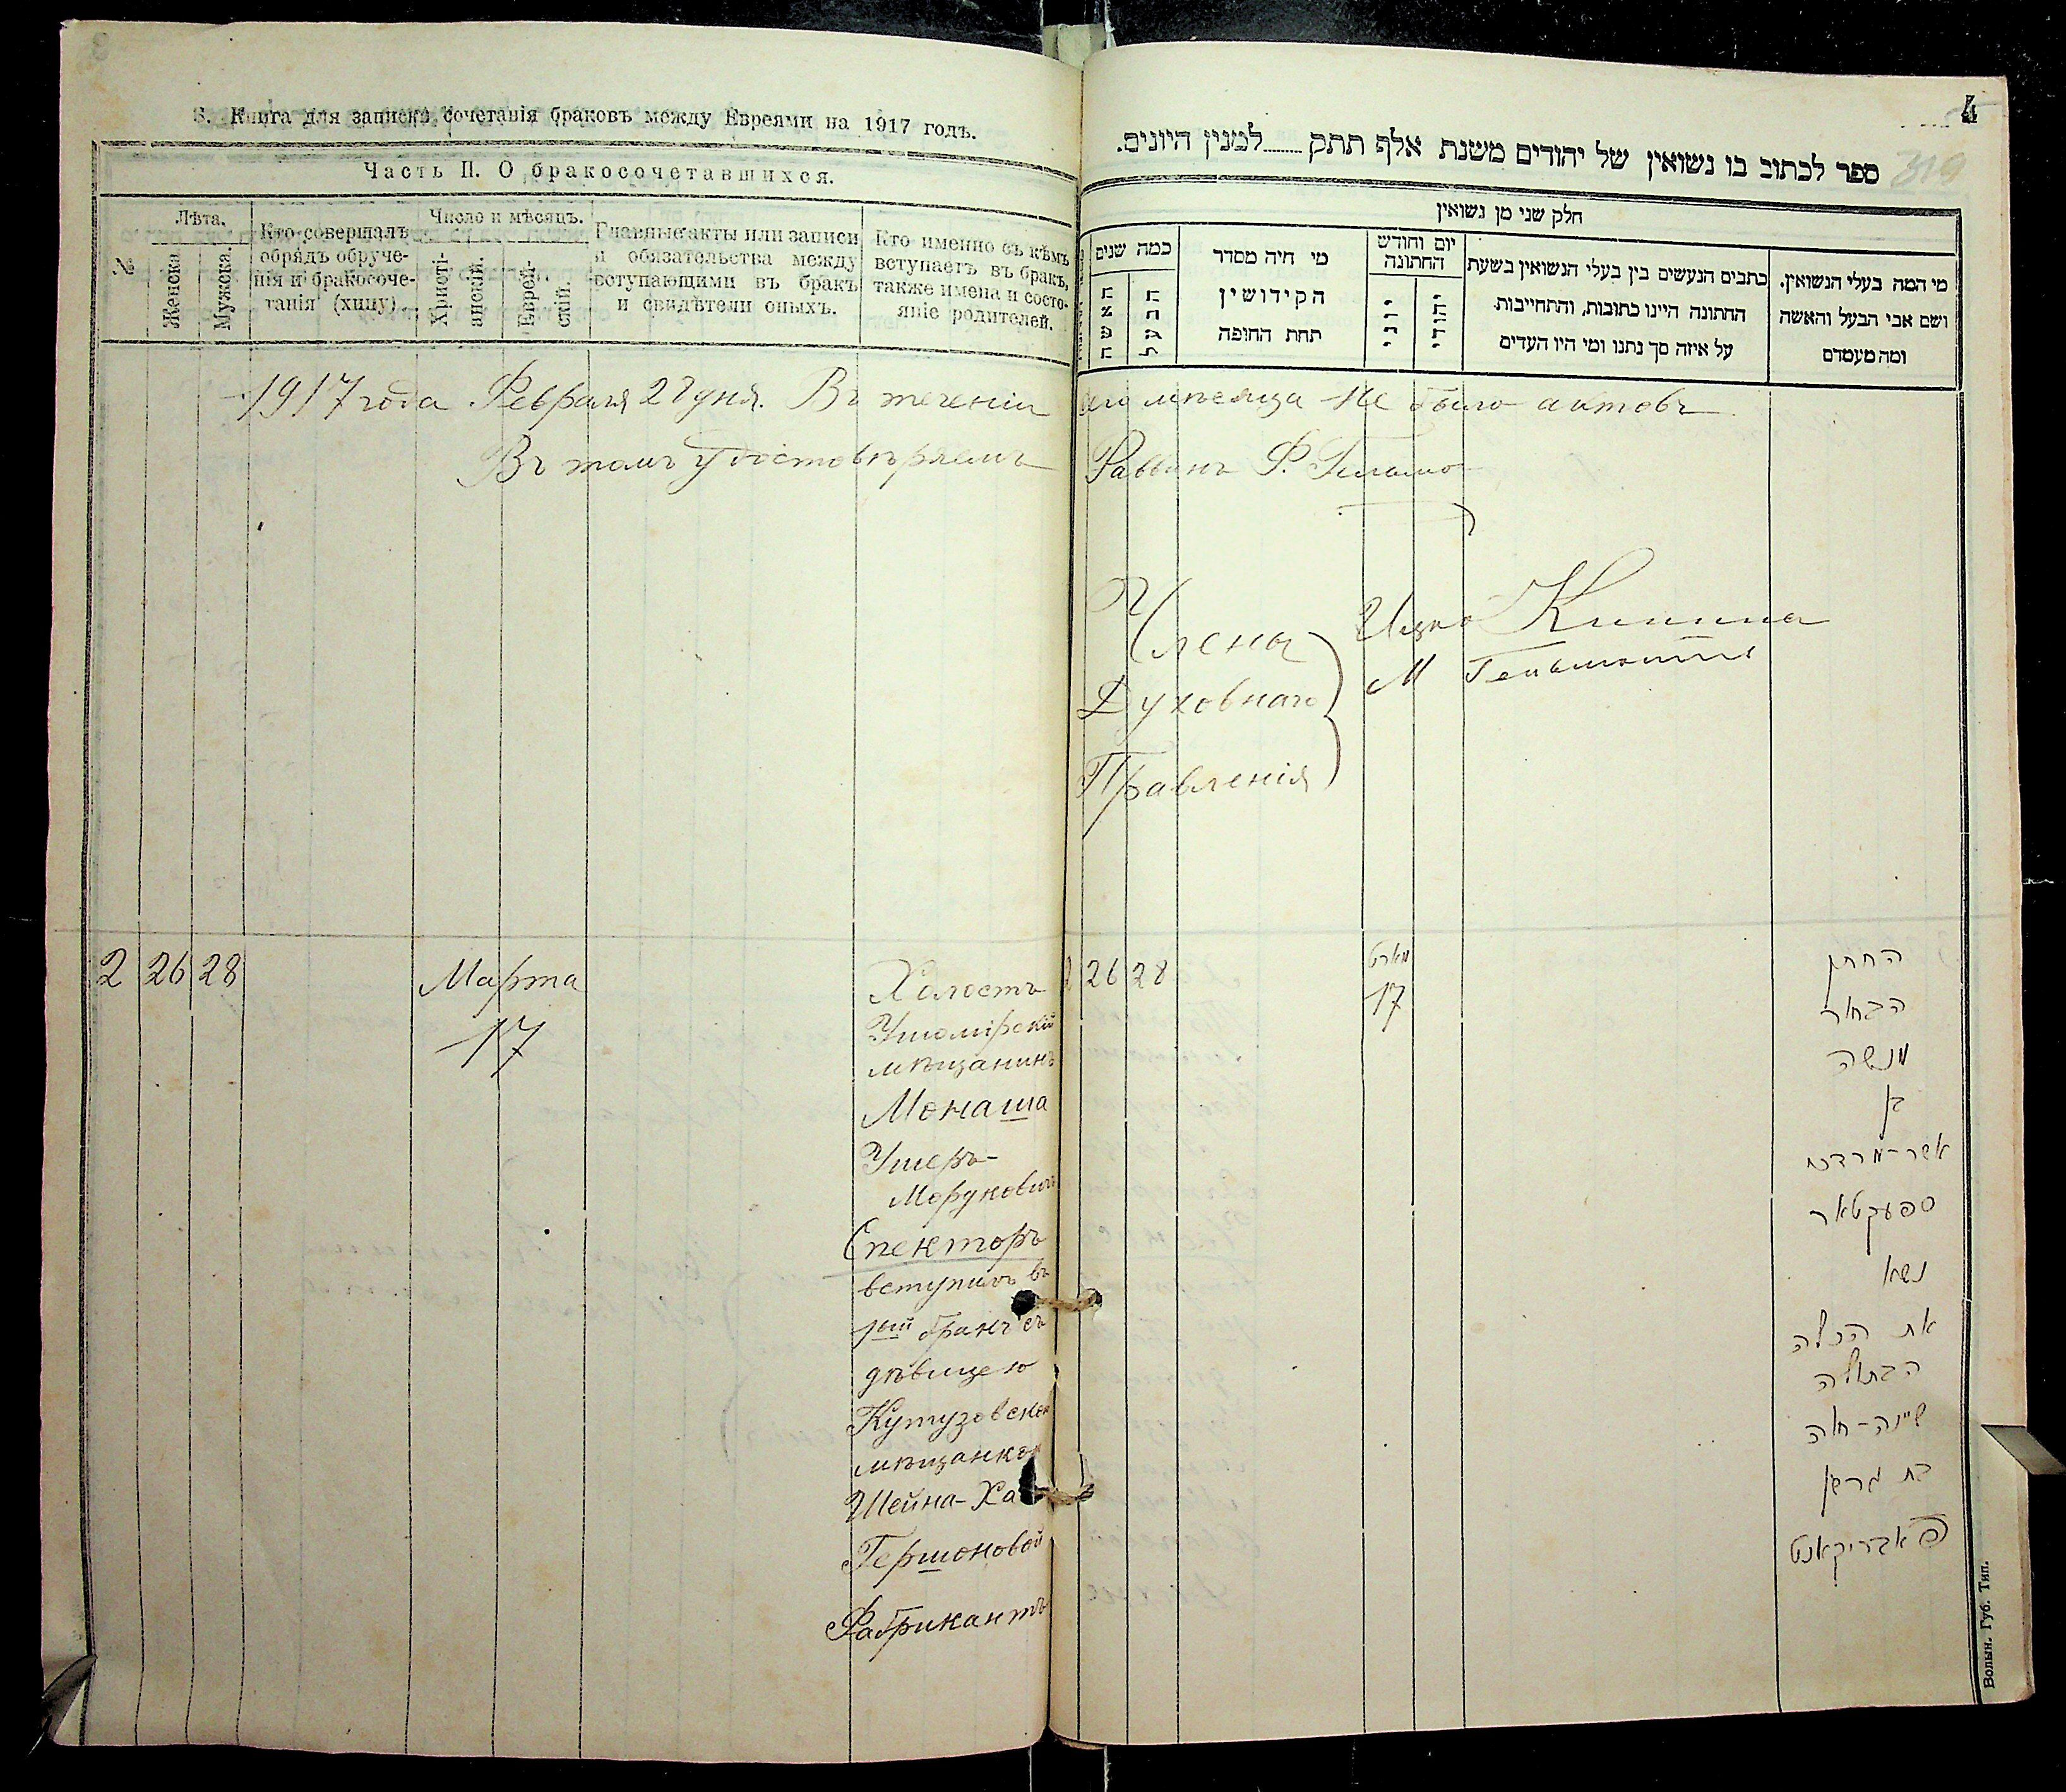 3. Книга для записки сочетанія браковъ между Евреями на 1917 годъ.
Часть II. О бракосочетавшихся.
№
Лѣта.
Женска.
Мужска.
Кто совершалъ
обрядъ обруче-
нія и бракосоче-
танія (хипу)
Число и мѣсяцъ.
Христі-
анскій.
Еврей-
скій.
Главные акты или записи
и обязательства между
вступающими въ бракъ
и свидѣтели оныхъ.
Кто именно съ кѣмъ
вступаетъ въ бракъ,
также имена и состо-
яніе родителей.
1917 года Февраля 27 дня. Въ теченіи
Въ томъ удостовѣряемъ
2 26 28
Марта
17
Холостъ
Ушомірскій
мѣщанинъ
Монаша
Ушеръ-
Мордковичъ
Спекторъ
вступилъ въ
1ый бракъ съ
дѣвицею
Кутузовской
мѣщанкой
Шейна-Ха
Гершоновой
Фабрикантъ
4
319
ספר לכתוב בו נשואין של יהודים משנת אלף תתק........למנין היונים.
חלק שני מן נשואין
כמה שנים
האשה
הבעל
מי היה מסדר
הקידושין
תחת החופה
יום וחודש
החתונה
יוני
יהודי
כתבים הנעשים בין בעלי הנשואין בשעת
החתונה היינו כתובות, והתחייבות
על איזה סך נתנו ומי היו העדים
מי המה בעלי הנשואין.
ושם אבי הבעל והאשה
ומה מעמדם
сего мѣсяца не было актовъ
Раввинъ Ф.
Члены
Духовнаго
Правленія
Ицко Кипнисъ
М
2 26 28
מארט
17
החתן
הבחור
מנשה
בן
אשר-מרדכי
ספעקטאר
נשא
את הכלה
הבתולה
שיינה-חיה
בת גרשון
פאבריקאנט
Волын. Губ. Тип.